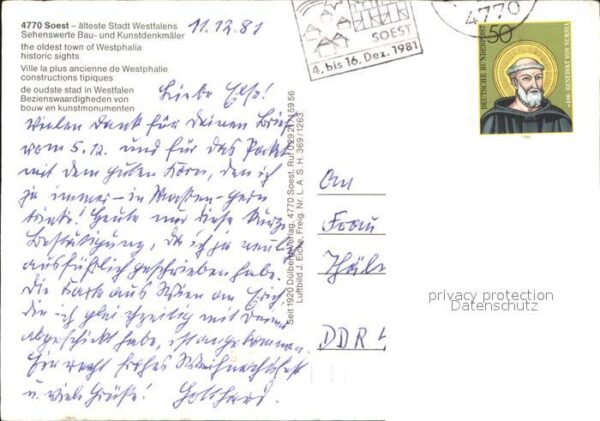 4770 Soest – älteste Stadt Westfalens
Sehenswerte Bau- und Kunstdenkmäler
the oldest town of Westphalia
historic sights
Ville la plus ancienne de Westphalie
constructions tipiques
de oudste stad in Westfalen
Bezienswaardigheden von
bouw en kunstmonumenten
11.12.81
SOEST
4. bis 16. Dez. 1981
4770
50
DEUTSCHE BUNDESPOST
480 · BENEDIKT VON NURSIA
Liebe Else!
Vielen Dank für Deinen Brief
vom 5.12. und für das Paket
mit dem guten Korn, den ich
ja immer – in Maßen – gern
trinke! Heute nur diese kurze
Bestätigung, da ich ja neulich
ausführlich geschrieben habe.
Die Karte aus Wien an Erich,
die ich gleichzeitig mit Deiner
abgeschickt habe, ist angekommen.
Ein recht frohes Weihnachtsfest
u. viele Grüße! Gotthard.
Seit 1920 Dülberg Verlag, 4770 Soest, Ruf 02921/15956
Luftbild J. Eicke, Freig. Nr. L. A. S. H. 369/1263
An
Frau
DDR
privacy protection
Datenschutz